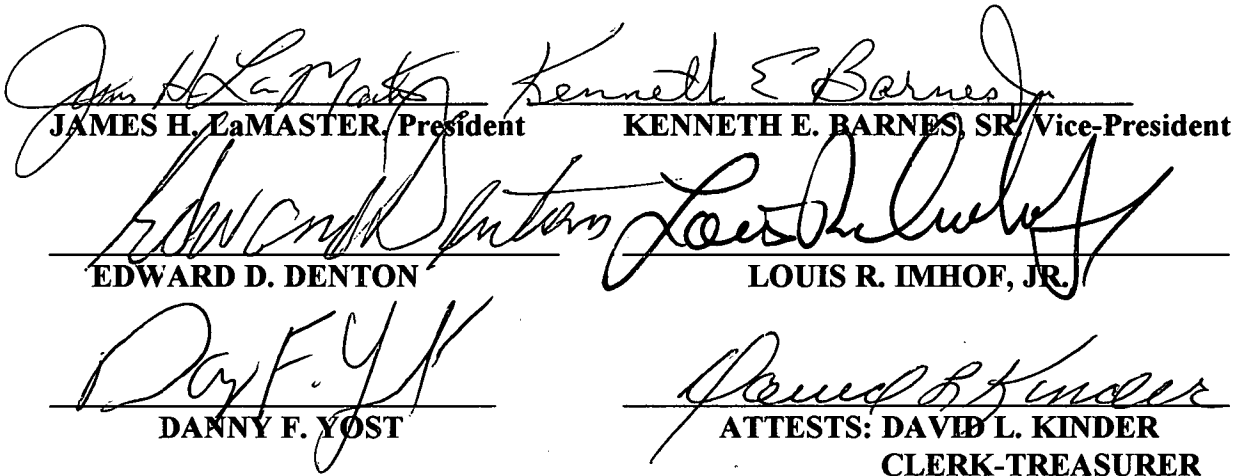 James H. LaMaster Kenneth E Barnes Jr
JAMES H. LaMASTER, President KENNETH E. BARNES, SR. Vice-President
Edward D Denton Louis R. Imhof Jr
EDWARD D. DENTON LOUIS R. IMHOF, JR.
Dany F. Yost David L Kinder
DANNY F. YOST ATTESTS: DAVID L. KINDER
CLERK-TREASURER